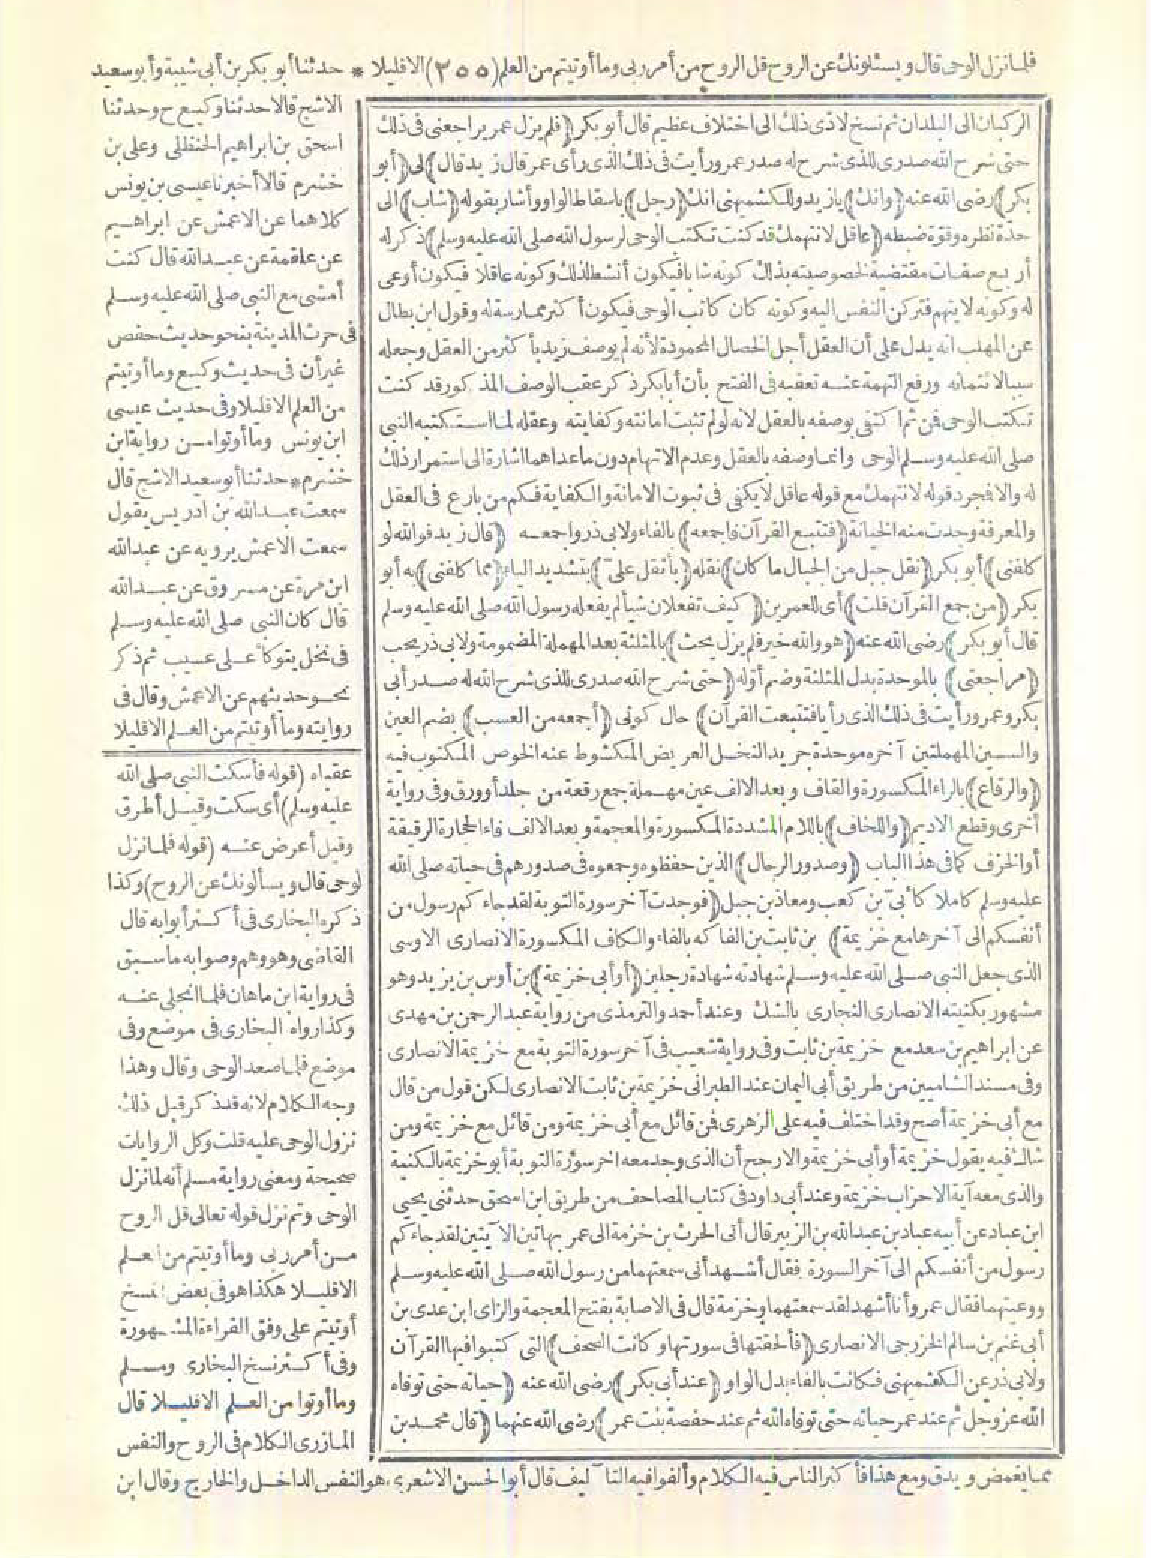 فلما نزل الوحى قال ويسئلونك عن الروح قل الروح من أمر ربى وما أوتيتم من العلم (٢٥٥) الا قليلا * حدثنا أبو بكر بن أبى شيبة وأبو سعيد
الاشج قالا حدثنا وكيع ح وحدثنا
اسحق بن ابراهيم الحنظلى وعلى بن
خشرم قالا أخبرنا عيسى بن يونس
كلاهما عن الاعمش عن ابراهيم
عن علقمة عن عبد الله قال كنت
أمشى مع النبى صلى الله عليه وسلم
فى حرث المدينة بنحو حديث حفص
غير أن فى حديث وكيع وما أوتيتم
من العلم الا قليلا وفى حديث عيسى
ابن يونس وما أوتوا من رواية ابن
خشرم * حدثنا أبو سعيد الاشج قال
سمعت عبد الله بن ادريس يقول
سمعت الاعمش يرويه عن عبد الله
ابن مرة عن مسروق عن عبد الله
قال كان النبى صلى الله عليه وسلم
فى نخل يتوكأ على عسيب ثم ذكر
نحو حديثهم عن الاعمش وقال فى
روايته وما أوتيتم من العلم الا قليلا
عقباه (قوله فأسكت النبى صلى الله
عليه وسلم) أى سكت وقيل أطرق
وقيل أعرض عنه (قوله فلما نزل
لوحى قال ويسألونك عن الروح) وكذا
ذكره البخارى فى أكثر أبوابه قال
القاضى وهو وهم وصوابه ما سبق
فى رواية ابن ماهان فلما انجلى عنه
وكذا رواه البخارى فى موضع وفى
موضع فلما صعد الوحى وقال وهذا
وجه الكلام لانه قد ذكر قبل ذلك
نزول الوحى عليه قلت وكل الروايات
صحيحة ومعنى رواية مسلم أنه لما نزل
الوحى وتم نزل قوله تعالى قل الروح
من أمر ربى وما أوتيتم من العلم
الا قليلا هكذا هو فى بعض النسخ
أوتيتم على وفق القراءة المشهورة
وفى أكثر نسخ البخارى ومسلم
وما أوتوا من العلم الا قليلا قال
المازرى الكلام فى الروح والنفس
الركبان الى البلدان ثم نسخ لادى ذلك الى اختلاف عظيم قال أبو بكر (فلم يزل عمر يراجعنى فى ذلك
حتى شرح الله صدرى للذى شرح له صدر عمر ورأيت فى ذلك الذى رأى عمر قال زيد قال) لى (أبو
بكر) رضى الله عنه (وانك) يا زيد وللكشميهنى انك (رجل) باسقاط الواو وأشار بقوله (شاب) الى
حدة نظره وقوة ضبطه (عاقل لا نتهمك قد كنت تكتب الوحى لرسول الله صلى الله عليه وسلم) ذكر له
أربع صفات مقتضية لخصوصيته بذلك كونه شابا فيكون أنشط لذلك وكونه عاقلا فيكون أوعى
له وكونه لا يتهم فتركن النفس اليه وكونه كان كاتب الوحى فيكون أكثر ممارسة له وقول ابن بطال
عن المهلب انه يدل على أن العقل أجل الخصال المحمودة لأنه لم يوصف زيد بأكثر من العقل وجعله
سببا لائتمانه ورفع التهمة عنه تعقبه فى الفتح بأن أبا بكر ذكر عقب الوصف المذكور قد كنت
تكتب الوحى فمن ثم اكتفى بوصفه بالعقل لانه لو لم تثبت امانته وكفايته وعقله لما استكتبه النبى
صلى الله عليه وسلم الوحى وانما وصفه بالعقل وعدم الاتهام دون ما عداهما اشارة الى استمرار ذلك
له والا فمجرد قوله لا نتهمك مع قوله عاقل لا يكفى فى ثبوت الامانة والكفاية فكم من بارع فى العقل
والمعرفة وجدت منه الخيانة (فتتبع القرآن فاجمعه) بالفاء ولابى ذر واجمعه (قال زيد فو الله لو
كلفنى) أبو بكر (نقل جبل من الجبال ما كان) نقله (بأثقل علىّ) بتشديد الياء (مما كلفنى) به أبو
بكر (من جمع القرآن قلت) أى للعمرين (كيف تفعلان شيأ لم يفعله رسول الله صلى الله عليه وسلم
قال أبو بكر) رضى الله عنه (هو والله خير فلم يزل يحث) بالمثلثة بعد المهملة المضمومة ولابى ذر يحب
(مراجعتى) بالموحدة بدل المثلثة وضم أوله (حتى شرح الله صدرى للذى شرح الله له صدر أبى
بكر وعمر ورأيت فى ذلك الذى رأيا فتتبعت القرآن) حال كونى (أجمعه من العسب) بضم العين
والسين المهملتين آخره موحدة جريد النخل العريض المكشوط عنه الخوص المكتوب فيه
(والرقاع) بالراء المكسورة والقاف وبعد الالف عين مهملة جمع رقعة من جلد أو ورق وفى رواية
أخرى وقطع الاديم (واللخاف) باللام المشددة المكسورة والمعجمة وبعد الالف فاء الحجارة الرقيقة
أو الخزف كما فى هذا الباب (وصدور الرجال) الذين حفظوه وجمعوه فى صدورهم فى حياته صلى الله
عليه وسلم كاملا كأبىّ بن كعب ومعاذ بن جبل (فوجدت آخر سورة التوبة لقد جاءكم رسول من
أنفسكم الى آخرها مع خزيمة) بن ثابت بن الفاكه بالفاء والكاف المكسورة الانصارى الاوسى
الذى جعل النبى صلى الله عليه وسلم شهادته شهادة رجلين (أو أبى خزيمة) بن أوس بن يزيد وهو
مشهور بكنيته الانصارى النجارى بالشك وعند أحمد والترمذى من رواية عبد الرحمن بن مهدى
عن ابراهيم بن سعد مع خزيمة بن ثابت وفى رواية شعيب فى آخر سورة التوبة مع خزيمة الانصارى
وفى مسند الشاميين من طريق أبى اليمان عند الطبرانى خزيمة بن ثابت الانصارى لكن قول من قال
مع أبى خزيمة أصح وقد اختلف فيه على الزهرى فمن قائل مع أبى خزيمة ومن قائل مع خزيمة ومن
شاك فيه يقول خزيمة أو أبى خزيمة والارجح أن الذى وجد معه آخر سورة التوبة أبو خزيمة بالكنية
والذى معه آية الاحزاب خزيمة وعند أبى داود فى كتاب المصاحف من طريق ابن اسحق حدثنى يحيى
ابن عباد عن أبيه عباد بن عبد الله بن الزبير قال أتى الحرث بن خزمة الى عمر بهاتين الآيتين لقد جاءكم
رسول من أنفسكم الى آخر السورة فقال أشهد أنى سمعتهما من رسول الله صلى الله عليه وسلم
ووعيتهما فقال عمر وأنا أشهد لقد سمعتهما وخزمة قال فى الاصابة بفتح المعجمة والزاى ابن عدى بن
أبى غنم بن سالم الخزرجى الانصارى (فألحقتها فى سورتها وكانت الصحف) التى كتبوا فيها القرآن
ولابى ذر عن الكشميهنى فكانت بالفاء بدل الواو (عند أبى بكر) رضى الله عنه (حياته حتى توفاه
الله عز وجل ثم عند عمر حياته حتى توفاه الله ثم عند حفصة بنت عمر) رضى الله عنهما (قال محمد بن
مما يغمض ويدق ومع هذا فأكثر الناس فيه الكلام وألفوا فيه التآليف قال أبو الحسن الاشعرى هو النفس الداخل والخارج وقال ابن